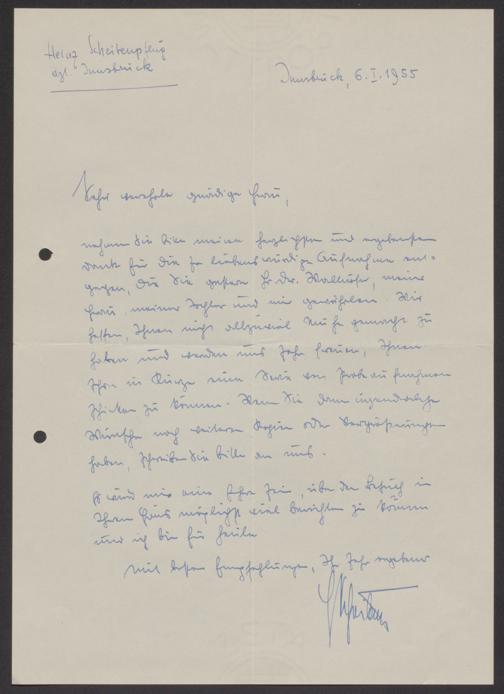 Heinz Scheibenpflug
dzt. Innsbruck
Innsbruck, 6.I.1955
Sehr verehrte gnädige Frau,
nehmen Sie bitte meinen herzlichsten und ergebensten
Dank für die so liebenswürdige Aufnahme ent-
gegen, die Sie gestern Hr. Dr. meiner
Frau, meiner Tochter und mir gewährten. Wir
hoffen, Ihnen nicht allzuviel Mühe gemacht zu
haben und werden uns sehr freuen, Ihnen
schon in Kürze eine Serie von Probeaufnahmen
schicken zu können. Wenn Sie dann irgendwelche
Wünsche nach weiteren Kopien oder Vergrößerungen
haben, schreiben Sie bitte an uns.
Es wird mir eine Ehre sein, über den Besuch in
Ihrem Haus möglichst viel berichten zu können
und ich bin für heute
mit besten Empfehlungen, Ihr sehr ergebener